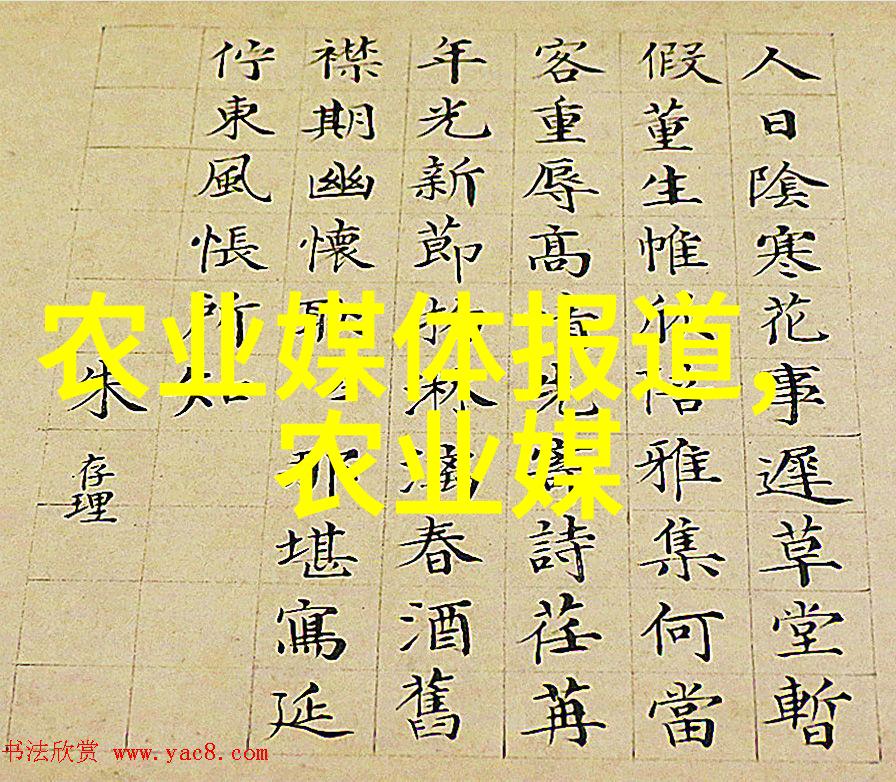 农业媒体报道,
农业媒
人日陰寒花事遲草堂暫
假董生帷欣陪雅集何當
客重辱高先詩荏苒
年光新節物淋漓春酒舊
襟期幽懷聊那堪寫延
佇東風悵所知
朱存理
书法欣赏 www.yac8.com